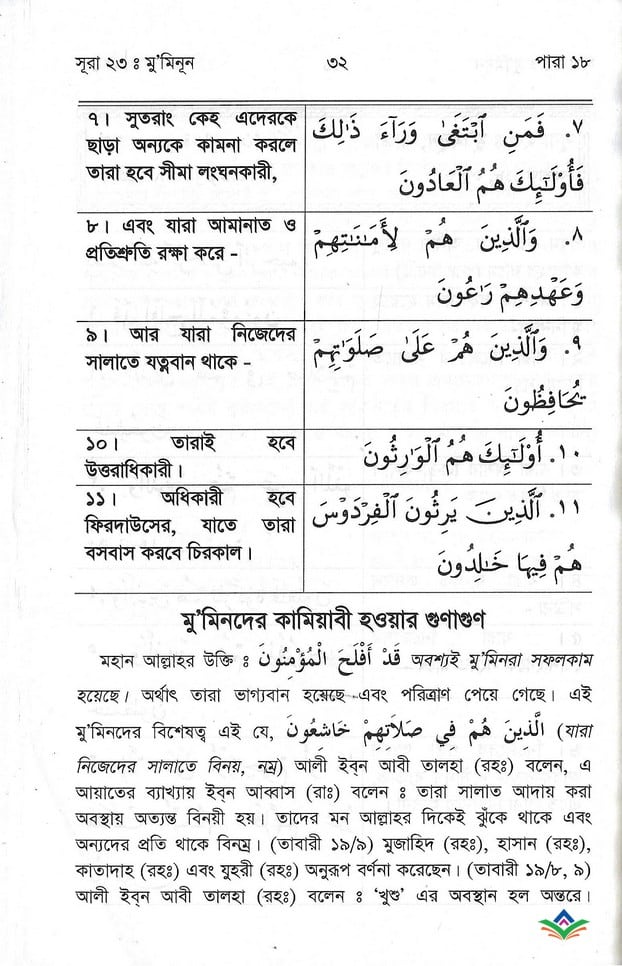 সূরা ২৩ ঃ মু'মিনূন ৩২ পারা ১৮
৭। সুতরাং কেহ এদেরকে
ছাড়া অন্যকে কামনা করলে
তারা হবে সীমা লংঘনকারী,
٧. فَمَنِ ابْتَغَىٰ وَرَآءَ ذَٰلِكَ
فَأُوْلَـٰٓئِكَ هُمُ الْعَادُونَ
৮। এবং যারা আমানাত ও
প্রতিশ্রুতি রক্ষা করে -
٨. وَالَّذِينَ هُمْ لِأَمَـٰنَـٰتِهِمْ
وَعَهْدِهِمْ رَٰعُونَ
৯। আর যারা নিজেদের
সালাতে যত্নবান থাকে -
٩. وَالَّذِينَ هُمْ عَلَىٰ صَلَوَٰتِهِمْ
يُحَافِظُونَ
১০। তারাই হবে
উত্তরাধিকারী।
١٠. أُوْلَـٰٓئِكَ هُمُ الْوَٰرِثُونَ
১১। অধিকারী হবে
ফিরদাউসের, যাতে তারা
বসবাস করবে চিরকাল।
١١. الَّذِينَ يَرِثُونَ الْفِرْدَوْسَ
هُمْ فِيهَا خَـٰلِدُونَ
মু'মিনদের কামিয়াবী হওয়ার গুণাগুণ
মহান আল্লাহর উক্তি ঃ قَدْ أَفْلَحَ الْمُؤْمِنُونَ অবশ্যই মু'মিনরা সফলকাম
হয়েছে। অর্থাৎ তারা ভাগ্যবান হয়েছে এবং পরিত্রাণ পেয়ে গেছে। এই
মু'মিনদের বিশেষত্ব এই যে, الَّذِينَ هُمْ فِي صَلَاتِهِمْ خَاشِعُونَ (যারা
নিজেদের সালাতে বিনয়, নম্র) আলী ইব্ন আবী তালহা (রহঃ) বলেন, এ
আয়াতের ব্যাখ্যায় ইব্ন আব্বাস (রাঃ) বলেন ঃ তারা সালাত আদায় করা
অবস্থায় অত্যন্ত বিনয়ী হয়। তাদের মন আল্লাহর দিকেই ঝুঁকে থাকে এবং
অন্যদের প্রতি থাকে বিনম্র। (তাবারী ১৯/৯) মুজাহিদ (রহঃ), হাসান (রহঃ),
কাতাদাহ (রহঃ) এবং যুহরী (রহঃ) অনুরূপ বর্ণনা করেছেন। (তাবারী ১৯/৮, ৯)
আলী ইব্ন আবী তালহা (রহঃ) বলেন ঃ 'খুশু' এর অবস্থান হল অন্তরে।